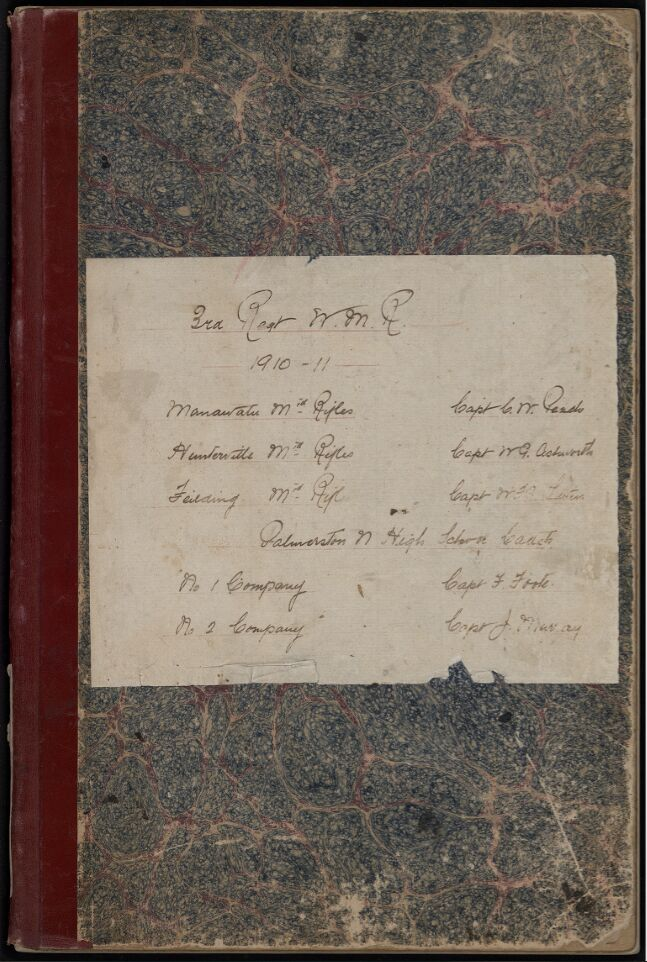 3rd Regt W. M. R.
1910 - 11
Manawatu Mtd Rifles Capt C. W.
Hunterville Mtd Rifles Capt W G Ashworth
Feilding Mtd Rifl Capt W
Palmerston N High School Cadets
No 1 Company Capt F Foote.
No 2 Company Capt J. Murray